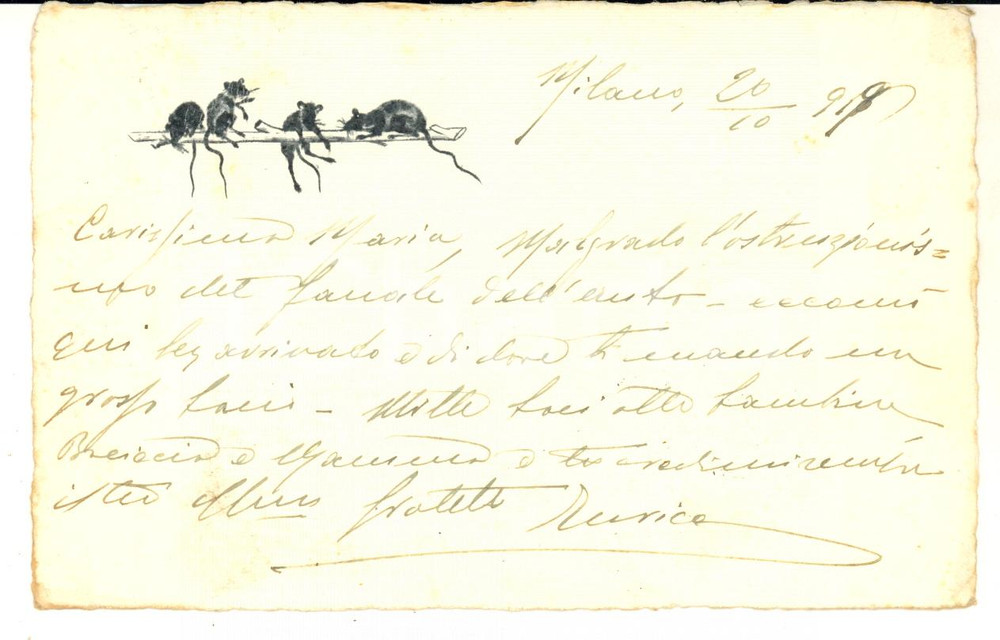 Milano, 20/10 919
Carissima Maria, Malgrado l'ostruzionis=
mo del fanale dell'
qui ben arrivato e di dove ti mando un
grosso bacio - Mille baci alle bambine
Bacia e Mamma e tu credimi sempre
il tuo aff.mo fratello Enrico